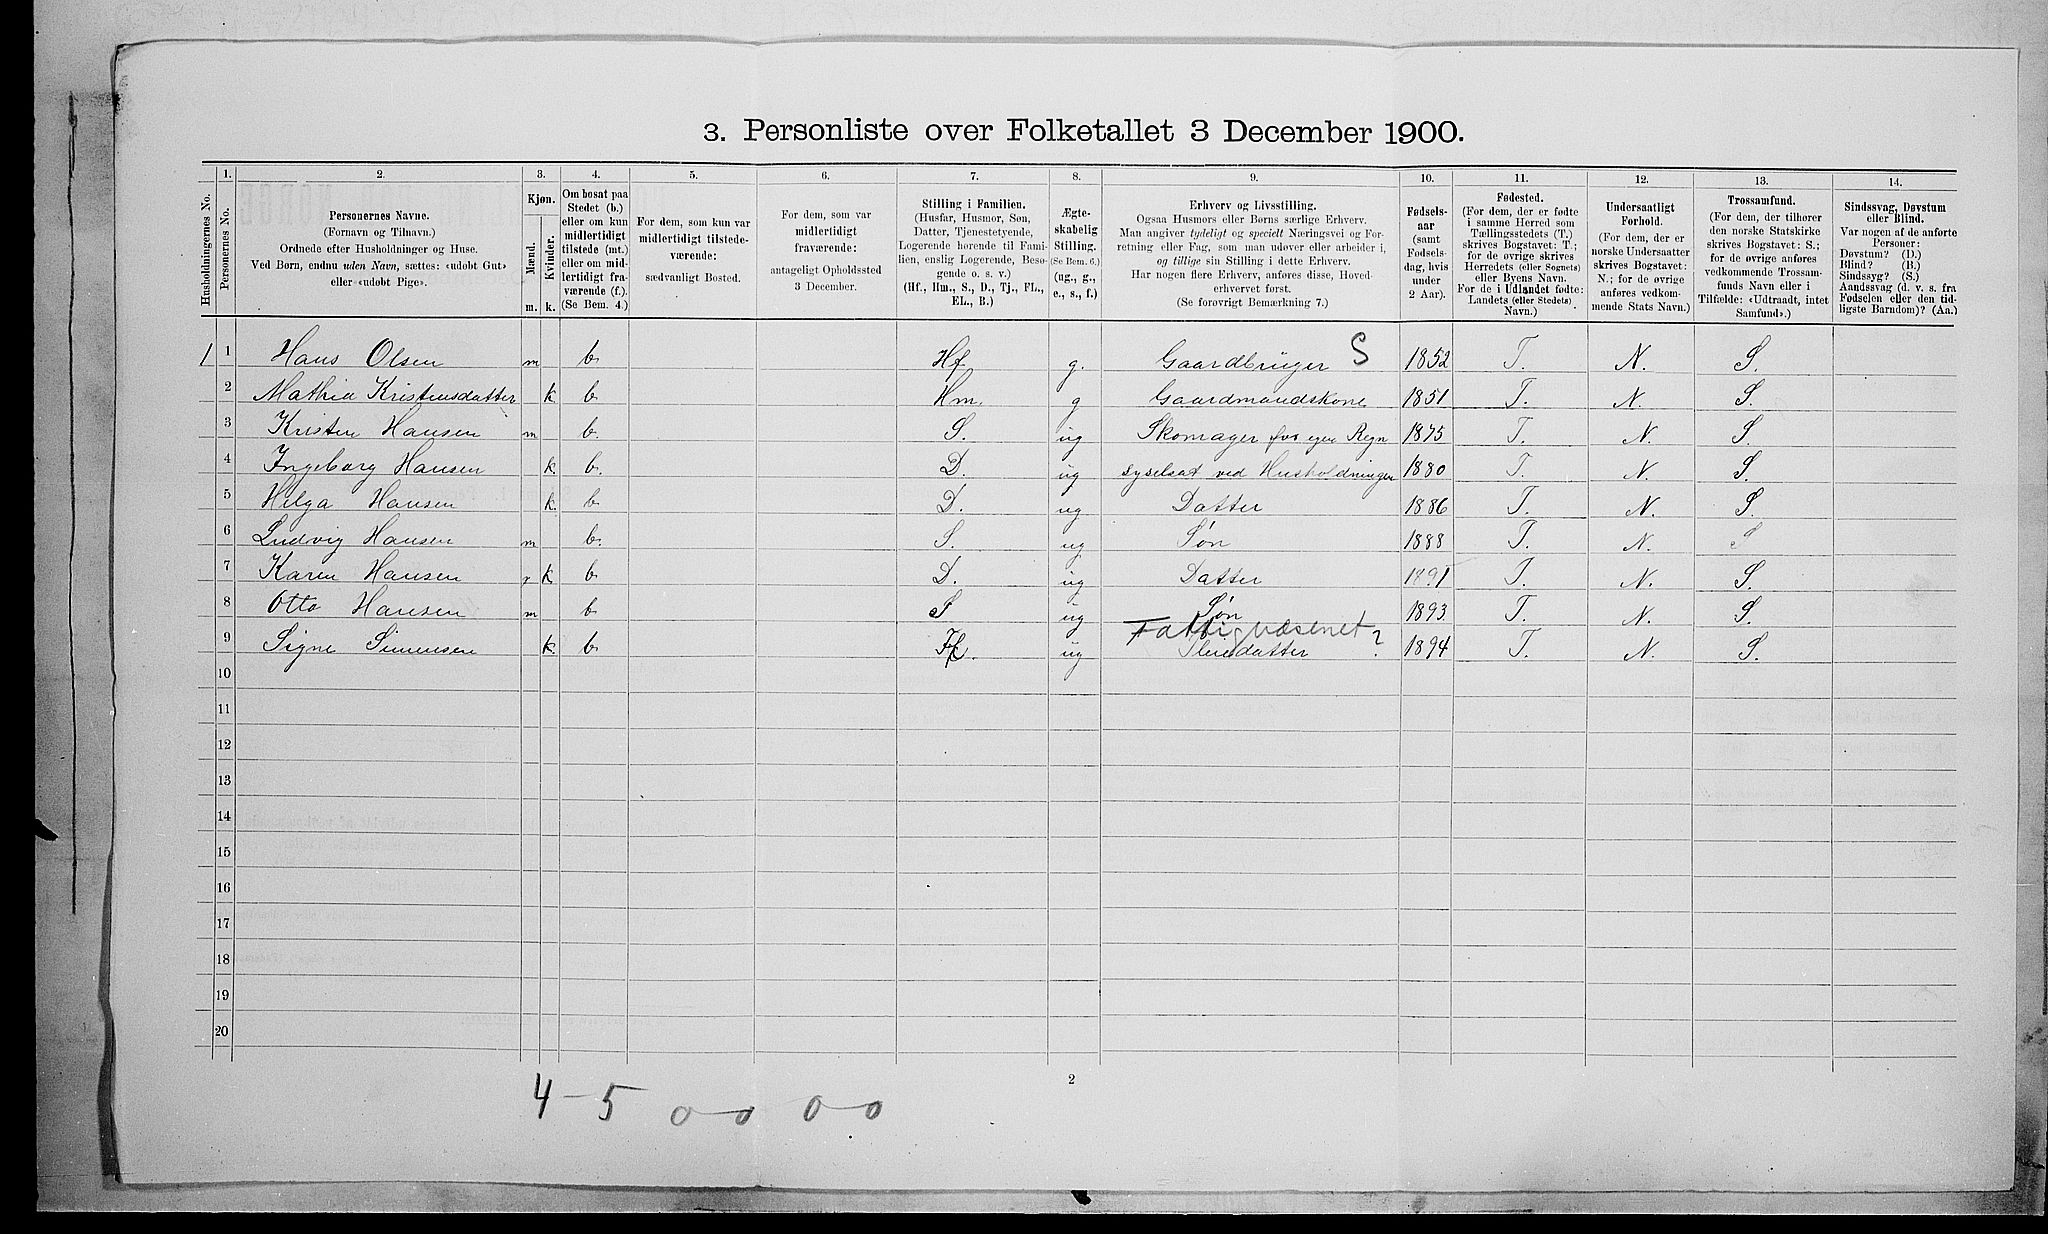 3. Personliste over Folketallet 3 December 1900.
Husholdningernes No.
1.
Personernes No.
2.
Personernes Navne.
(Fornavn og Tilnavn.)
Ordnede efter Husholdninger og Huse.
Ved Børn, endnu uden Navn, sættes: «udøbt Gut»
eller «udøbt Pige».
3.
Kjøn.
Mænd.
Kvinder.
m. k.
4.
Om bosat paa
Stedet (b.)
eller om kun
midlertidigt
tilstede (mt.)
eller om mid-
lertidigt fra-
værende (f.).
(Se Bem. 4.)
5.
For dem, som kun var
midlertidigt tilstede-
værende:
sædvanligt Bosted.
6.
For dem, som var
midlertidigt
fraværende:
antageligt Opholdssted
3 December.
7.
Stilling i Familien.
(Husfar, Husmor, Søn,
Datter, Tjenestetyende,
Logerende hørende til Fami-
lien, enslig Logerende, Besø-
gende o. s. v.)
(Hf., Hm., S., D., Tj., FL.,
EL., B.)
8.
Ægte-
skabelig
Stilling.
(Se Bem. 6.)
(ug., g.,
e., s., f.)
9.
Erhverv og Livsstilling.
Ogsaa Husmors eller Børns særlige Erhverv.
Man angiver tydeligt og specielt Næringsvei og For-
retning eller Fag, som man udøver eller arbeider i,
og tillige sin Stilling i dette Erhverv.
Har nogen flere Erhverv, anføres disse, Hoved-
erhvervet først.
(Se forøvrigt Bemærkning 7.)
10.
Fødsels-
aar
(samt
Fødsels-
dag, hvis
under
2 Aar).
11.
Fødested.
(For dem, der er fødte
i samme Herred som
Tællingsstedets (T.)
skrives Bogstavet: T.;
for de øvrige skrives
Herredets (eller Sognets)
eller Byens Navn.
For de i Udlandet fødte:
Landets (eller Stedets)
Navn.)
12.
Undersaatligt
Forhold.
(For dem, der er
norske Undersaatter
skrives Bogstavet:
N.; for de øvrige
anføres vedkom-
mende Stats Navn.)
13.
Trossamfund.
(For dem, der tilhører
den norske Statskirke
skrives Bogstavet: S.;
for de øvrige anføres
vedkommende Trossam-
funds Navn eller i
Tilfælde: «Udtraadt, intet
Samfund».)
14.
Sindssvag, Døvstum
eller Blind.
Var nogen af de anførte
Personer:
Døvstum? (D.)
Blind? (B.)
Sindssyg? (S.)
Aandssvag (d. v. s. fra
Fødselen eller den tid-
ligste Barndom)? (Aa.)
1 1 Hans Olsen m b. Hf g. Gaardbruger S 1852 T. N. S.
2 Mathia Kristensdatter k b. Hm. g Gaardmandskone 1851 T. N. S.
3 Kristen Hansen m b. S. ug Skomager for egen Regn 1875 T. N. S.
4 Ingeborg Hansen k. b. D. ug syselsat ved Husholdningen 1880 T. N. S.
5 Helga Hansen k. b D. ug Datter 1886 T. N. S.
6 Ludvig Hansen m b. S. ug Søn 1888 T. N. S
7 Karen Hansen k b D. ug Datter 1891 T. N. S.
8 Otto Hansen m b S ug Søn 1893 T. N. S.
Fattigvæsenet?
9 Signe Simensen k. b ug Pleiedatter 1894 T. N. S.
10
11
12
13
14
15
16
17
18
19
20
2
4 - 5 0 - 0 0 - 0